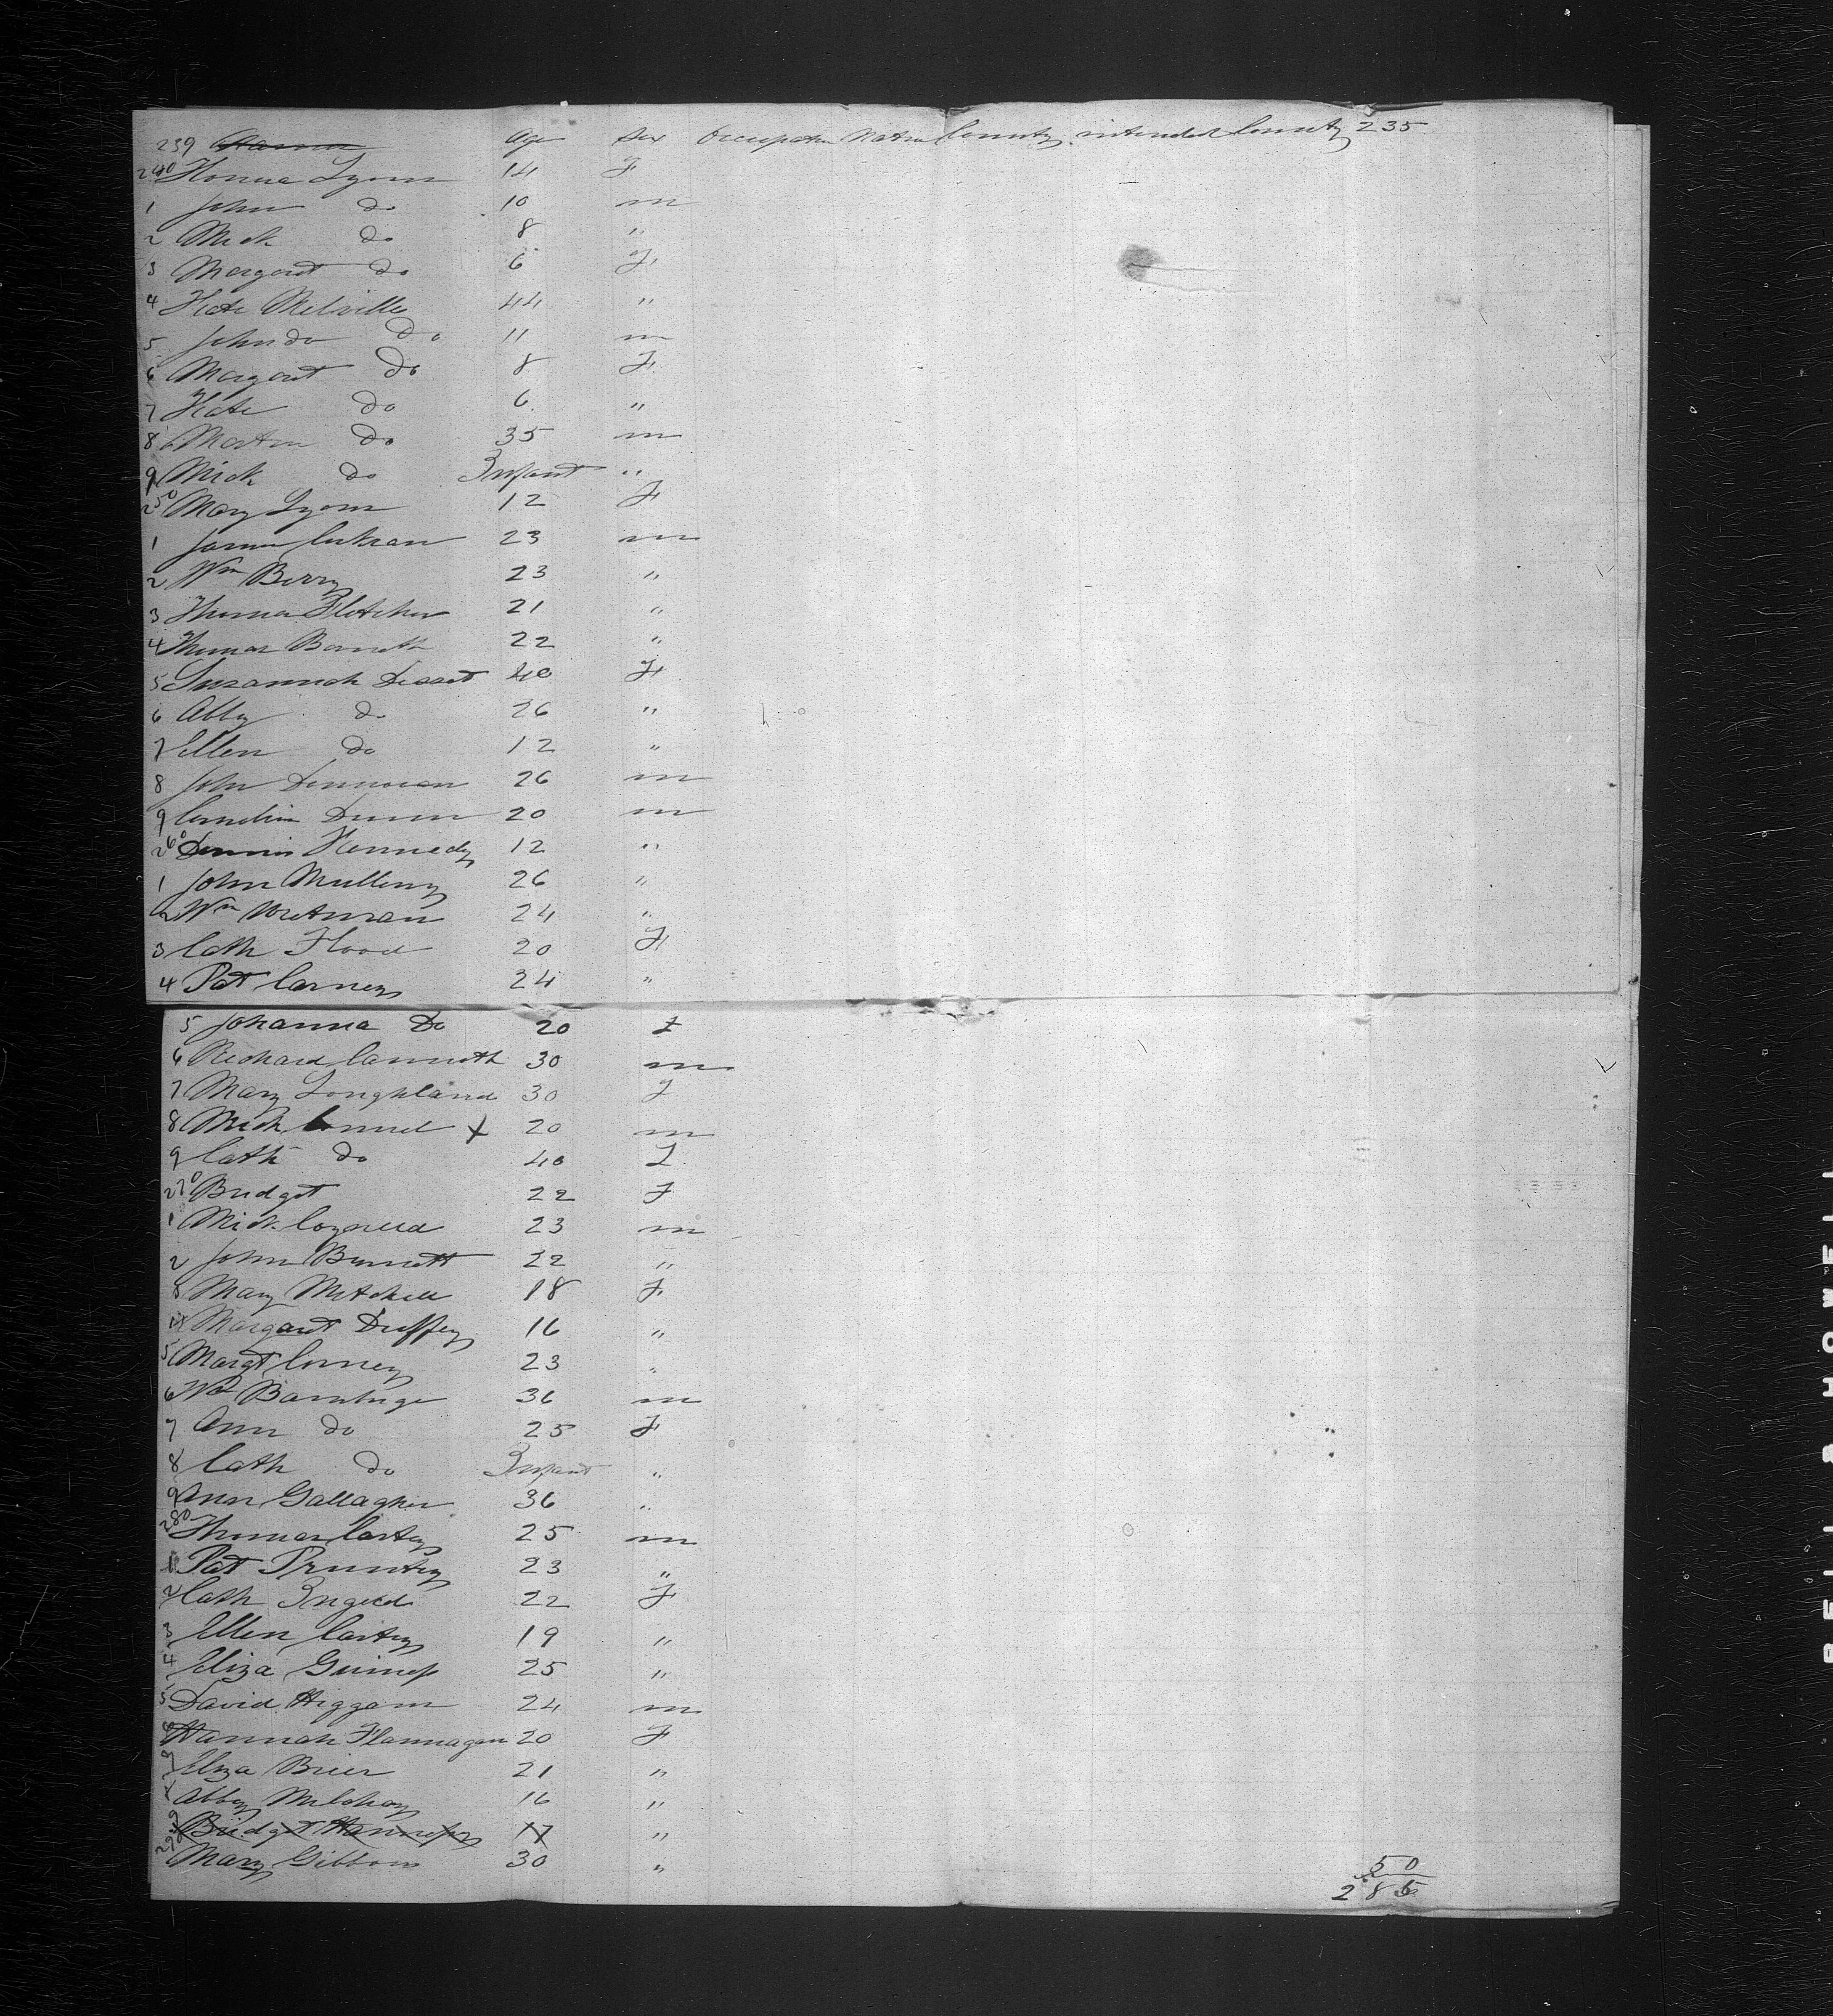 239 Names Age Sex Occupation Native County intended County 235
240 Honna Lyons 14 F
1 John do 10 m
2 Mick do 8 "
3 Margaret do 6 F
4 Kate Melville 44 "
5 John do Do 11 m
6 Margaret Do 8 F
7 Kate Do 6 "
8 Martin Do 35 m
9 Mick do Infant "
250 Mary Lyons 12 F
1 James 23 m
2 Wm Berry 23 "
3 Thomas Fletcher 21 "
4 Thomas Barrett 22 "
5 Suzannah 40 F
6 Abby do 26 "
7 Ellen do 12 "
8 John 26 m
9 Cornelius Dunn 20 m
260 Dennis Kennedy 12 "
1 John Mulleny 26 "
2 Wm 24 "
3 Cath Flood 20 F
4 Pat Carney 24 "
5 Johanna Do 20 F
6 Richard 30 m
7 Mary Loughland 30 F
8 Mick x 20 m
9 Cath do 40 F
270 Bridget 22 F
1 Mick 23 m
2 John Burnett 22 "
3 Mary Mitchell 18 F
4 Margaret Duffey 16 "
5 Margt Corney 23 "
6 Wm 36 m
7 Ann do 25 F
8 Cath do Infant "
9 Ann Gallagher 36 "
280 Thomas Cartey 25 m
1 Pat Pruntey 23 "
2 Cath 22 F
3 Ellen Cartey 19 "
4 Eliza Guiness 25 "
5 David Higgam 24 m
6 Hannah Flannagan 20 F
7 Eliza Brier 21 "
8 Abby 16 "
9 Bridget 17 "
290 Mary Gibbons 30 "
50
285